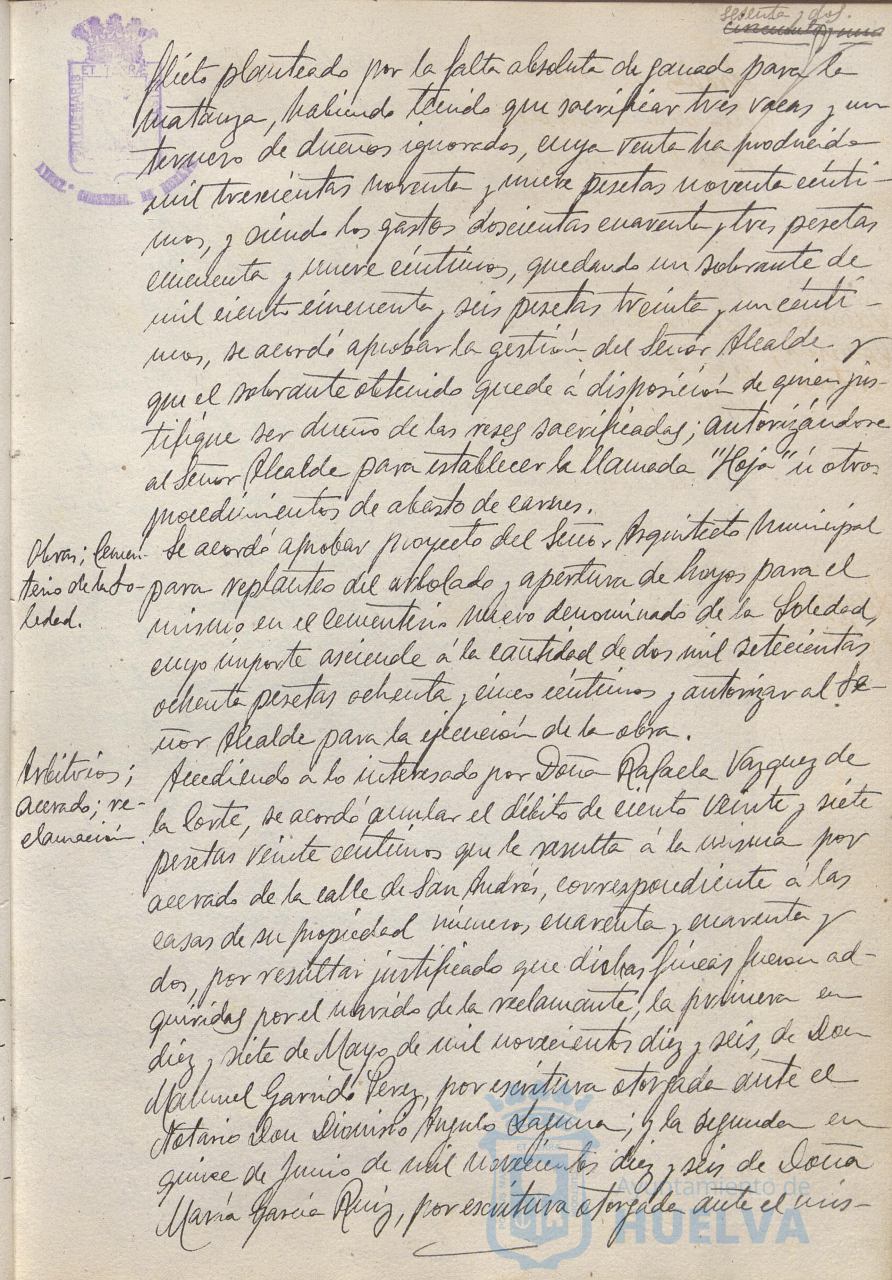 sesenta y dos.
cincuenta y uno
flicto planteado por la falta absoluta de ganado para la
matanza, habiendo tenido que sacrificar tres vacas y un
ternero de dueños ignorados, cuya venta ha producido
mil trescientas noventa y nueve pesetas noventa cénti-
mos, y siendo los gastos doscientas cuarenta y tres pesetas
cincuenta y nueve céntimos, quedando un sobrante de
mil ciento cincuenta y seis pesetas treinta y un cénti-
mos, se acordó aprobar la gestión del Señor Alcalde y
que el sobrante obtenido quede á disposición de quien jus-
tifique ser dueño de las reses sacrificadas; autorizándose
al Señor Alcalde para establecer la llamada "Hoja" ú otros
procedimientos de abasto de carnes.
Obras; Cemen-
terio de la So-
ledad.
Se acordó aprobar proyecto del Señor Arquitecto Municipal
para replanteo del arbolado y apertura de hoyos para el
mismo en el cementerio nuevo denominado de la Soledad,
cuyo importe asciende á la cantidad de dos mil setecientas
ochenta pesetas ochenta y cinco céntimos y autorizar al Se-
ñor Alcalde para la ejecución de la obra.
Arbitrios;
acerado; re-
clamación
Accediendo á lo interesado por Doña Rafaela Vazquez de
la Corte, se acordó anular el débito de ciento veinte y siete
pesetas veinte céntimos que le resulta á la misma por
acerado de la calle de San Andrés, correspondiente á las
casas de su propiedad números cuarenta y cuarenta y
dos, por resultar justificado que dichas fincas fueron ad-
quiridas por el marido de la reclamante, la primera en
diez y siete de Mayo de mil novecientos diez y seis, de Don
Manuel Garrido Perez, por escritura otorgada ante el
Notario Don Dionisio Angulo Laguna; y la segunda en
quince de Junio de mil novecientos diez y seis de Doña
María García Ruiz, por escritura otorgada ante el mis-
Ayuntamiento de
HUELVA